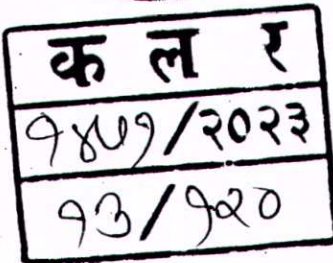 क ल र
१४५१/२०२३
१३/१२०